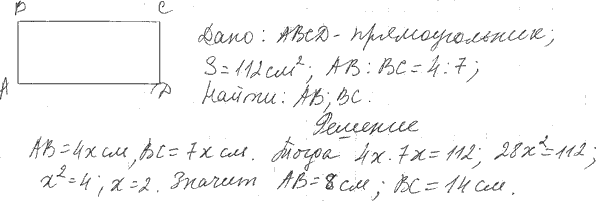 B C
Дано: ABCD - прямоугольник;
S = 112 см²; AB : BC = 4 : 7;
A D
Найти: AB; BC.
Решение
AB = 4x см, BC = 7x см. Тогда 4x · 7x = 112; 28x² = 112;
x² = 4; x = 2. Значит AB = 8 см; BC = 14 см.